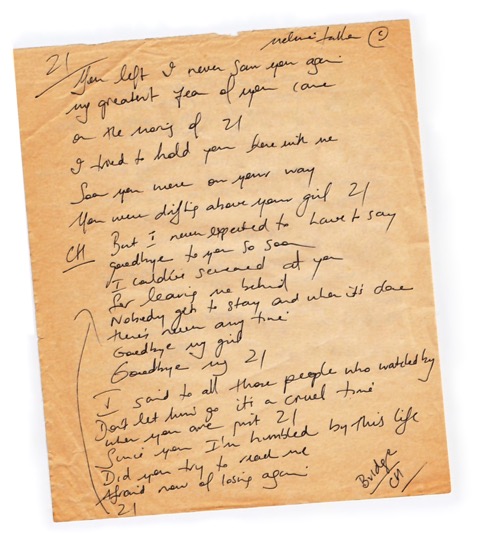 21 ©
You left I never saw you again
my greatest fear of you came
on the morning of 21
I tried to hold you here with me
Soon you were on your way
You were drifting above your girl 21
CH But I never expected to have to say
goodbye to you so soon
I could've screamed at you
for leaving me behind
Nobody gets to stay and when it's done
there's never any time
Goodbye my girl
Goodbye my 21
I said to all those people who watched by
Don't let him go it's a cruel time
when you are just 21
Since you I'm humbled by this life
Did you try to reach me
Afraid now of losing again
21
Bridge
CH